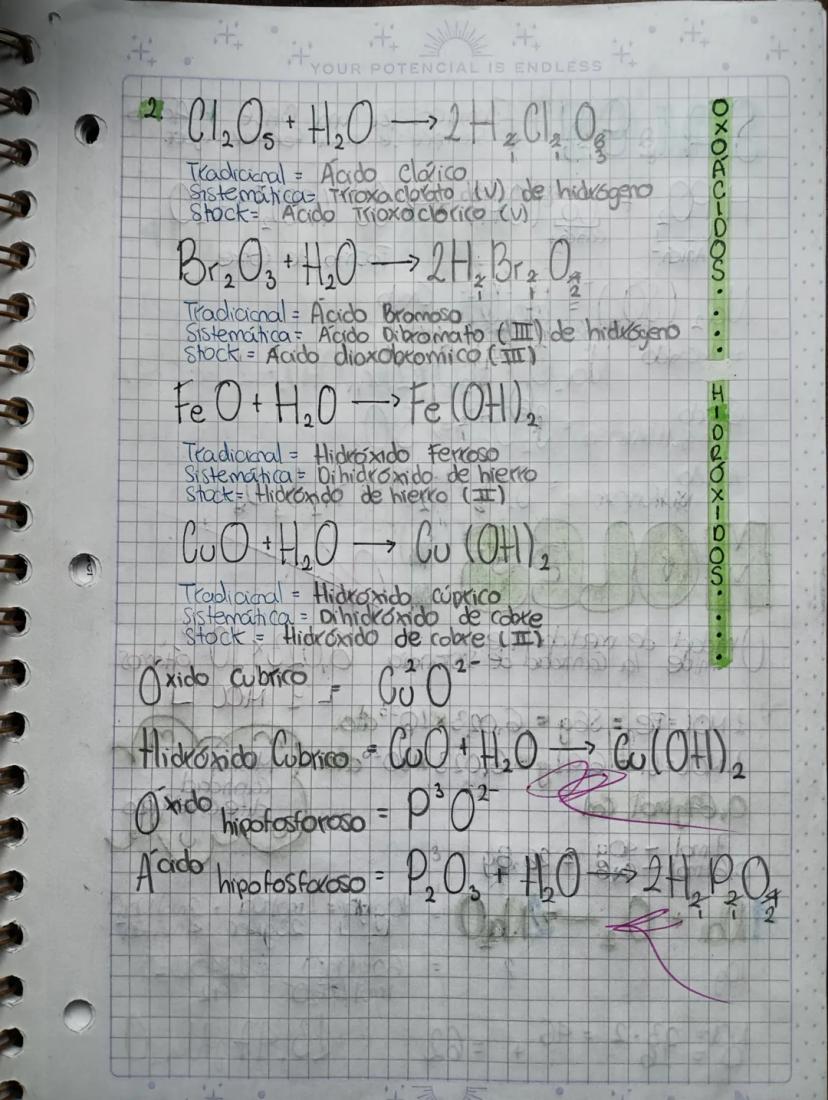 YOUR POTENCIAL IS ENDLESS
2. Cl₂O₅ + H₂O → 2H₂Cl₂O₆
1 1 3
Tradicional = Ácido Clórico
Sistemática = Trioxaclorato (V) de hidrógeno
Stock = Ácido Trioxoclórico (V)
Br₂O₃ + H₂O → 2H₂Br₂O₄
1 1 2
Tradicional = Ácido Bromoso
Sistemática = Ácido Dibromato (III) de hidrógeno
Stock = Ácido dioxobromico (III)
OXOÁCIDOS....
FeO + H₂O → Fe(OH)₂
Tradicional = Hidróxido Ferroso
Sistemática = Dihidróxido de hierro
Stock = Hidróxido de hierro (II)
CuO + H₂O → Cu(OH)₂
Tradicional = Hidróxido cúprico
Sistemática = Dihidróxido de cobre
Stock = Hidróxido de cobre (II)
HIDRÓXIDOS.....
Óxido Cubrico = Cu²O²⁻
Hidróxido Cubrico = CuO + H₂O → Cu(OH)₂
Óxido hipofosforoso = P³O²⁻
Ácido hipofosforoso = P₂³O₃ + H₂O → 2H₂P₂O₄
1 1 2